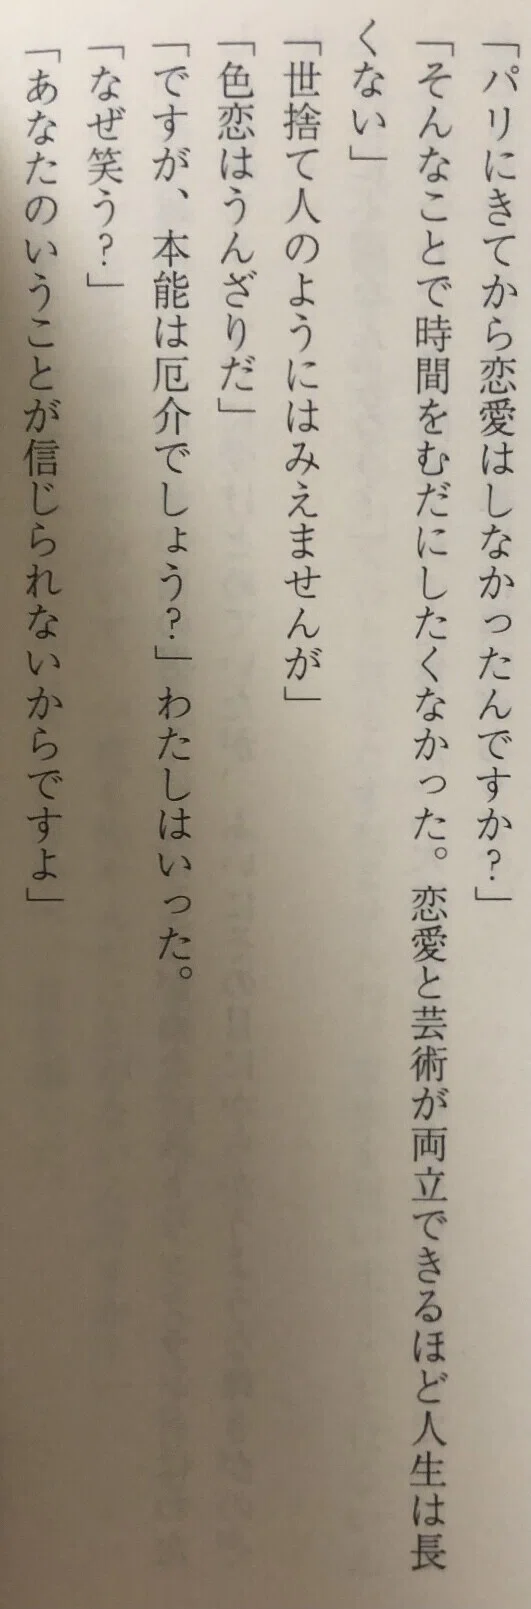 「パリにきてから恋愛はしなかったんですか?」
「そんなことで時間をむだにしたくなかった。恋愛と芸術が両立できるほど人生は長
くない」
「世捨て人のようにはみえませんが」
「色恋はうんざりだ」
「ですが、本能は厄介でしょう?」わたしはいった。
「なぜ笑う?」
「あなたのいうことが信じられないからですよ」